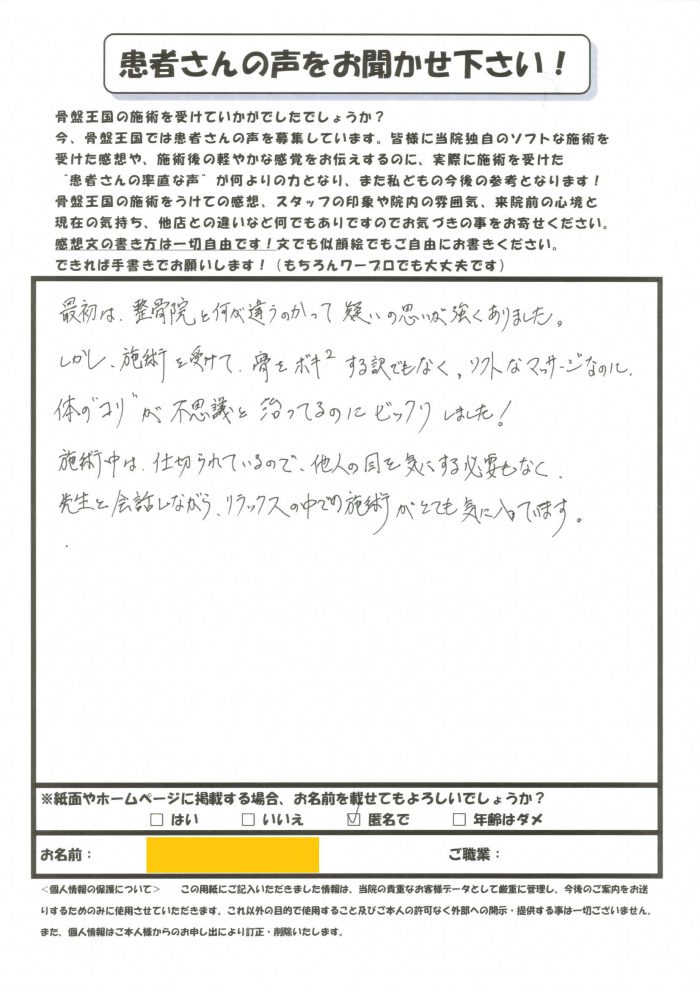 患者さんの声をお聞かせ下さい！
骨盤王国の施術を受けていかがでしたでしょうか？
今、骨盤王国では患者さんの声を募集しています。皆様に当院独自のソフトな施術を
受けた感想や、施術後の軽やかな感覚をお伝えするのに、実際に施術を受けた
“患者さんの率直な声”が何よりの力となり、また私どもの今後の参考となります！
骨盤王国の施術をうけての感想、スタッフの印象や院内の雰囲気、来院前の心境と
現在の気持ち、他店との違いなど何でもありですのでお気づきの事をお寄せください。
感想文の書き方は一切自由です！文でも似顔絵でもご自由にお書きください。
できれば手書きでお願いします！（もちろんワープロでも大丈夫です）
最初は、整骨院と何が違うのかって疑いの思いが強くありました。
しかし、施術を受けて、骨をボキ²する訳でもなく、ソフトなマッサージなのに、
体の“コリ”が不思議と治ってるのにビックリしました！
施術中は、仕切られているので、他人の目を気にする必要もなく、
先生と会話しながら、リラックスの中での施術がとても気に入ってます。
※紙面やホームページに掲載する場合、お名前を載せてもよろしいでしょうか？
□ はい □ いいえ ☑ 匿名で □ 年齢はダメ
お名前： ご職業：
＜個人情報の保護について＞ この用紙にご記入いただきました情報は、当院の貴重なお客様データとして厳重に管理し、今後のご案内をお送
りするためのみに使用させていただきます。これ以外の目的で使用すること及びご本人の許可なく外部への開示・提供する事は一切ございません。
また、個人情報はご本人様からのお申し出により訂正・削除いたします。